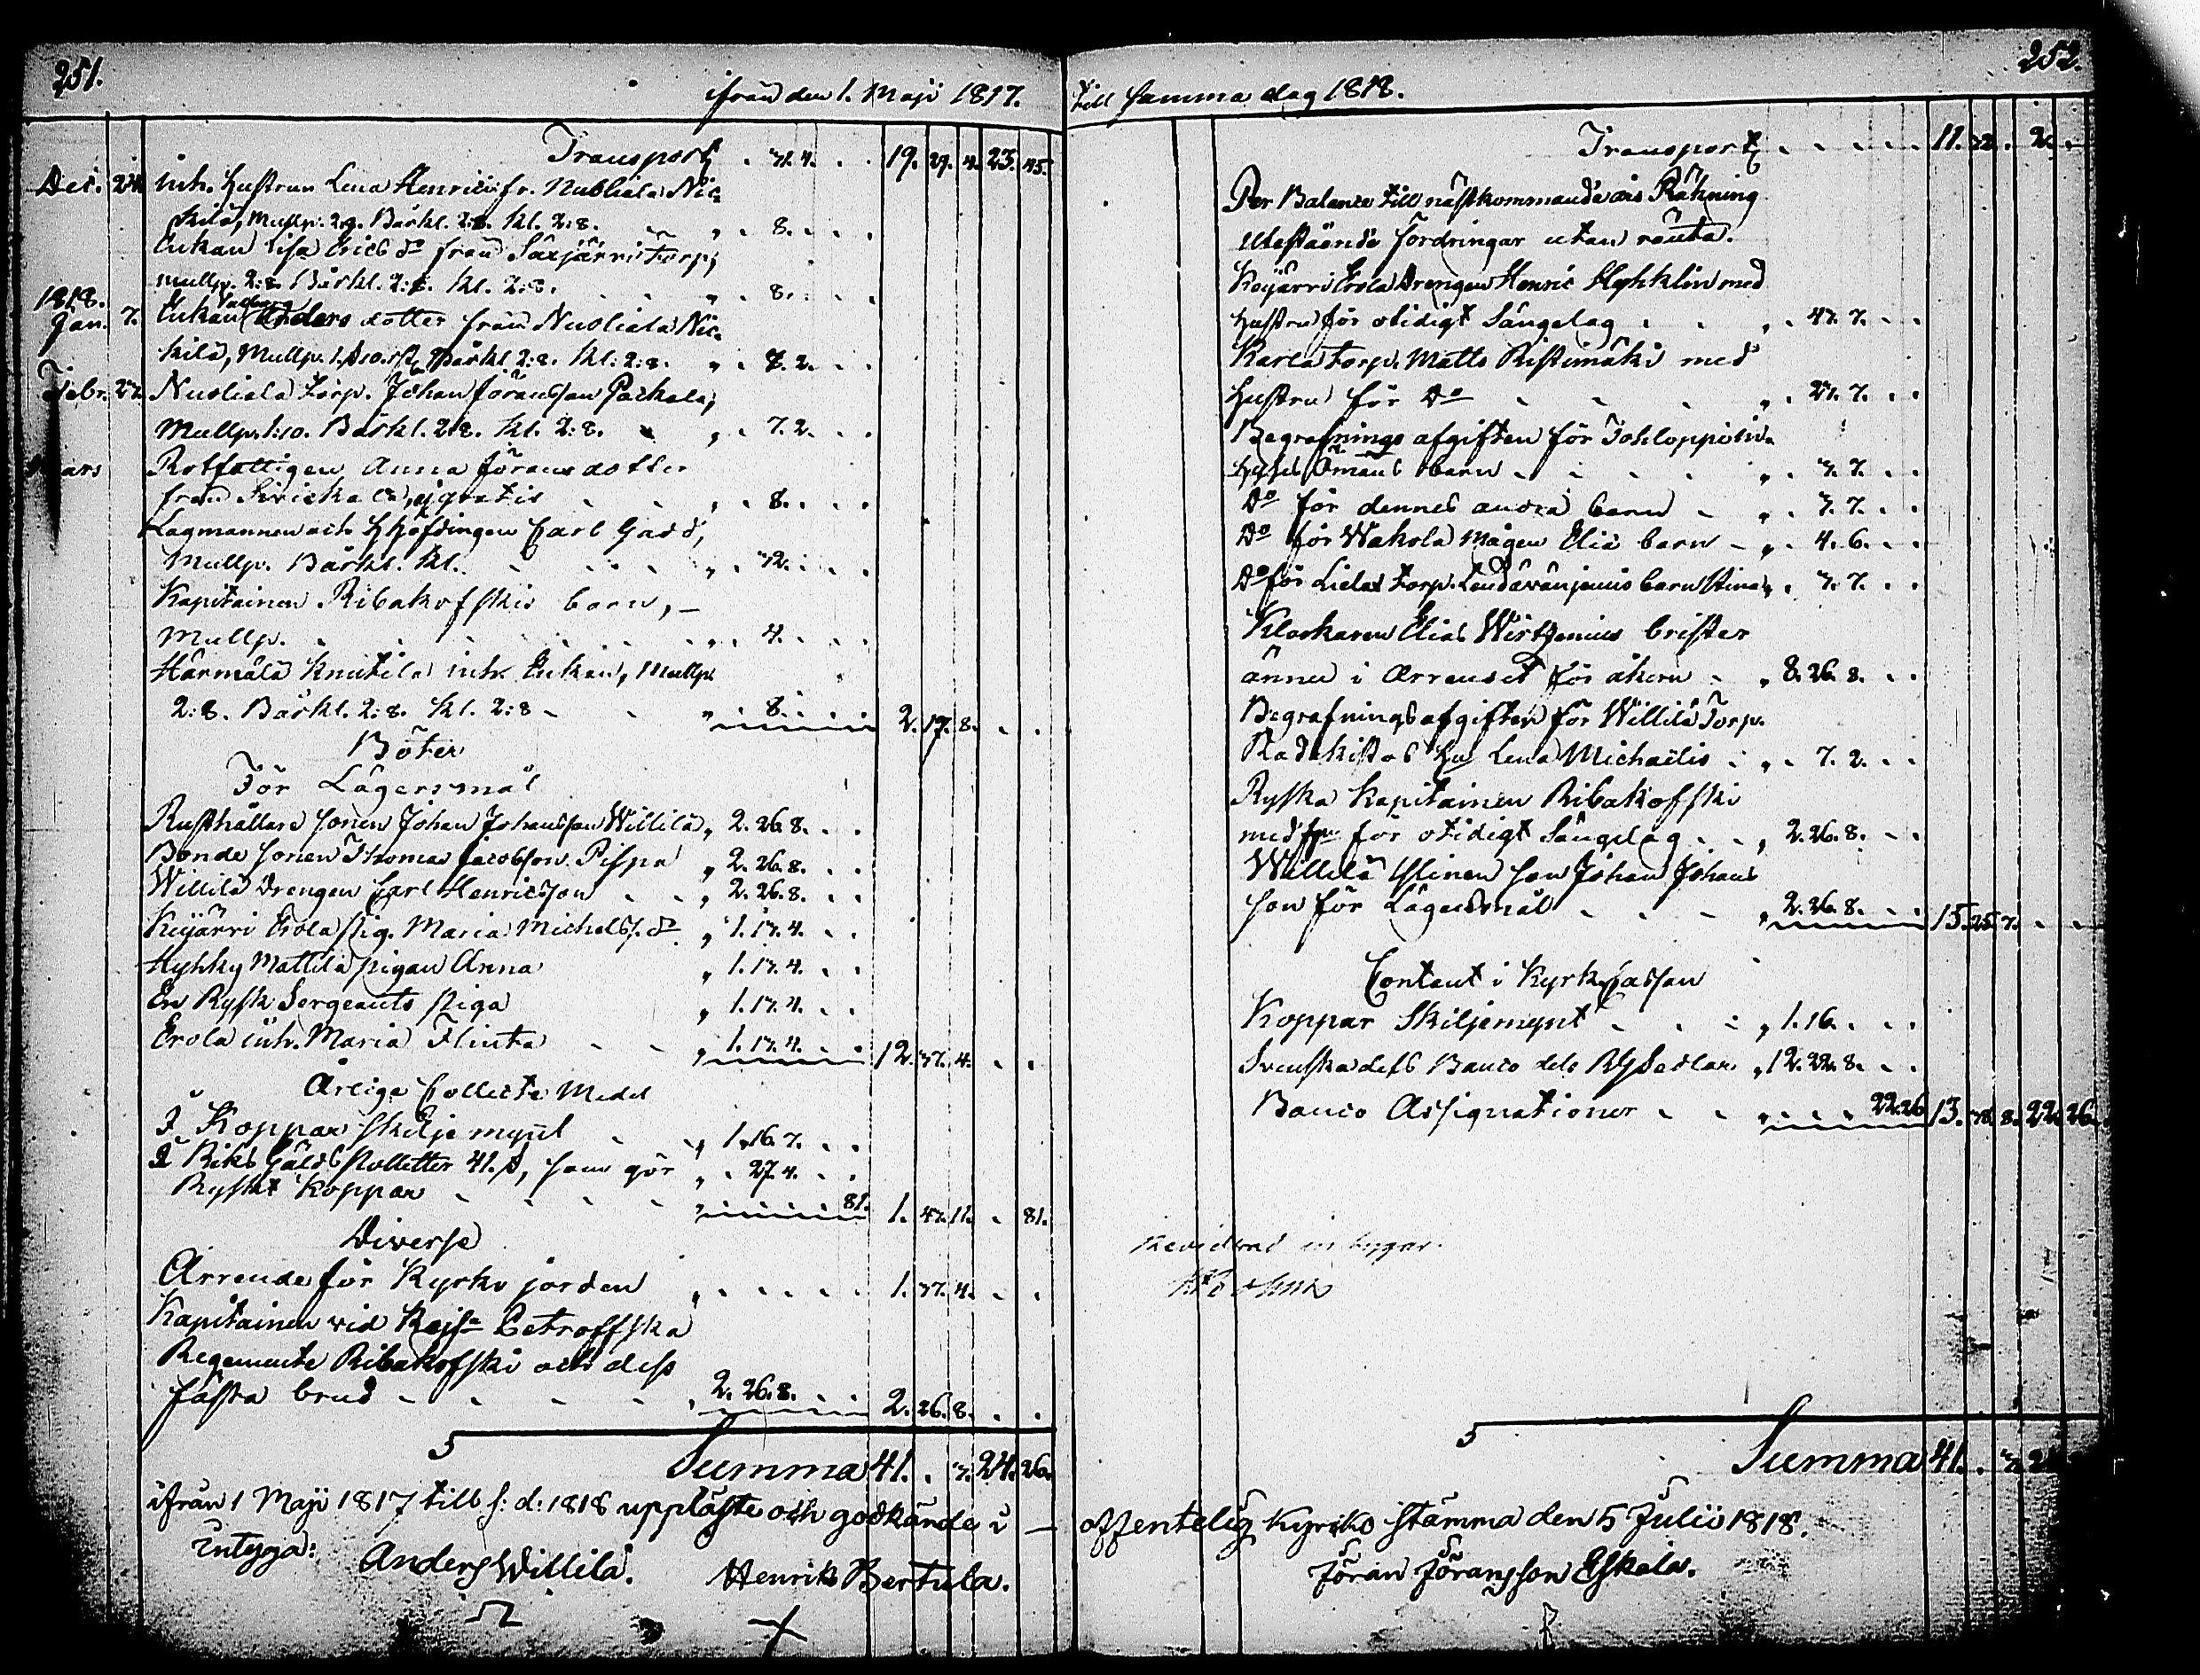 251.
ifrån den 1. Maji 1817.
Transport . 31. 4. . . 19. 29. 4. 23. 45.
Dec. 24. inh. hustrun Lena Henrici fr. Nuoliala Nic-
kilä, Mullp. 2:8. Bårkl. 2:8. Kl. 2:8. " . 8. . .
Enkan Lisa Erics dr från Saxjärvi Torp,
mullp. 2:8. Bårkl. 2:8. Kl. 2:8. " . 8. . .
1818.
Jan. 7. Enkan Walborg Anders dotter från Nuoliala Nic-
kilä, Mullp. Bårkl. 2:8. Kl. 2:8. " . 7. 2. . .
Febr. 22. Nuoliala Torp. Johan Göransson Packala,
Mullp. 1:10. Bårkl. 2:8. Kl. 2:8. " . 7. 2. . .
Mars Rotfattigen Anna Göransdotter
från gratis " . 8. . .
Lagmannen och Hhöfdingen Carl Gadd,
Mullp. Bårkl. Kl. " . 32. . .
Kapitainen Ribakofskis barn, –
Mullp. " . 4. . .
Härmälä Knutila inh. Enkan, Mullp.
2:8. Bårkl. 2:8. Kl. 2:8 " . 8. . . 2. 17. 8. . .
Böter
För Lägersmål
Rusthållare sonen Johan Johansson Willilä " 2. 26. 8. . .
Bonde sonen Thomas Jacobson Pispa " 2. 26. 8. . .
Willilä Drengen Carl Henricsson " 2. 26. 8. . .
Keijärvi Erola pig. Maria Michelss. dr " 1. 17. 4. . .
Hyhky Mattila pigan Anna " 1. 17. 4. . .
En Rysk Sergeants piga " 1. 17. 4. . .
Erola inh. Maria Flinta " 1. 17. 4. . . 12. 37. 4. . .
Årlige Collecte Medel
I Koppar Skiljemynt " 1. 16. 7. . .
I Riks Gälds Polletter 41. ß, som gör " . 27. 4. . .
Ryskt Koppar 81. 1. 43. 11. . 81.
Diverse
Arrende för Kyrko jorden " . . . . . 1. 37. 4. . .
Kapitainen vid Kejs. Petroffska
Regemente Ribakofski och dess
fästa brud " 2. 26. 8. . . 2. 26. 8. . .
Summa 41. . 3. 24. 26.
ifrån 1 Maji 1817 till s: d: 1818 uppläste och godkände i –
intyga:
Anders Willilä. Henrik Bertula.
252.
till samma dag 1818.
Transport . . . . . 11. . 2. .
Per Balance till nästkommande års Räkning
Utestående fordringar utan ränta.
Keijärvi Erola Drengen Henric Hyhklin med
hustru för otidigt Sängelag " . 47. 7. . .
Karla Torp. Matts Ristimäki med
hustru för Do " . 21. 7. . .
Begrafnings afgiften för
Ömans barn " . 3. 7. . .
Do för dennes andra barn " . 3. 7. . .
Do för Wahola mågen Eliæ barn " . 4. 6. . .
Do för Liela Torp. barn Stina " . 3. 7. . .
Klockaren Elias Wirtzenius brister
ännu i Arrendet för åkern " 8. 26. 8. . .
Begrafnings afgiften för Willilä Torp.
Radikistos hu Lena Michaëlis " . 7. 2. . .
Ryska Kapitainen Ribakoffski
med fru för otidigt Sängelag " 2. 26. 8. . .
Willilä son Johan Johans
son för Lägersmål " 2. 26. 8. . . 15. 25. 7. . .
Contant i KyrkCassan
Koppar Skiljemynt " 1. 16. . .
Svenska dels Banco dels Sedlar " 12. 22. 8. . .
Banco Assignationer " . . . 22. 26. 13. 38. 8. 22. 26.
Summa 41. . 3. 2
offentelig Kyrko stämma den 5 Julii 1818.
Jöran Jöransson Eskola.